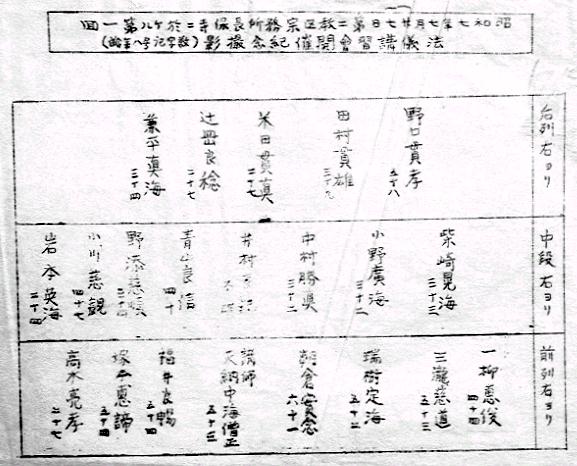 昭和七年七月廿七日第二教区宗務所長保寺ニ於ケル第一回
法儀講習會開催紀念撮影(数字記号ハ年齢)
后列右ヨリ
野口貫孝 五十八
田村貫雄 三十九
米田貫真 二十七
辻岡良稔 二十七
兼平真海 三十四
中段右ヨリ
柴崎晃海 三十三
小野廣海 三十二
中村勝真 三十二
青山良信 四十
野添慈順 三十四
小川慈観 四十七
岩本英海 三十四
前列右ヨリ
一柳惠俊 四十四
三瀧慈道 五十三
瑞樹定海 五十二
朝倉安念 六十一
講師
天納中海僧正 五十三
福井良暢 五十四
塚本惠諦 五十四
高木亮孝 二十七